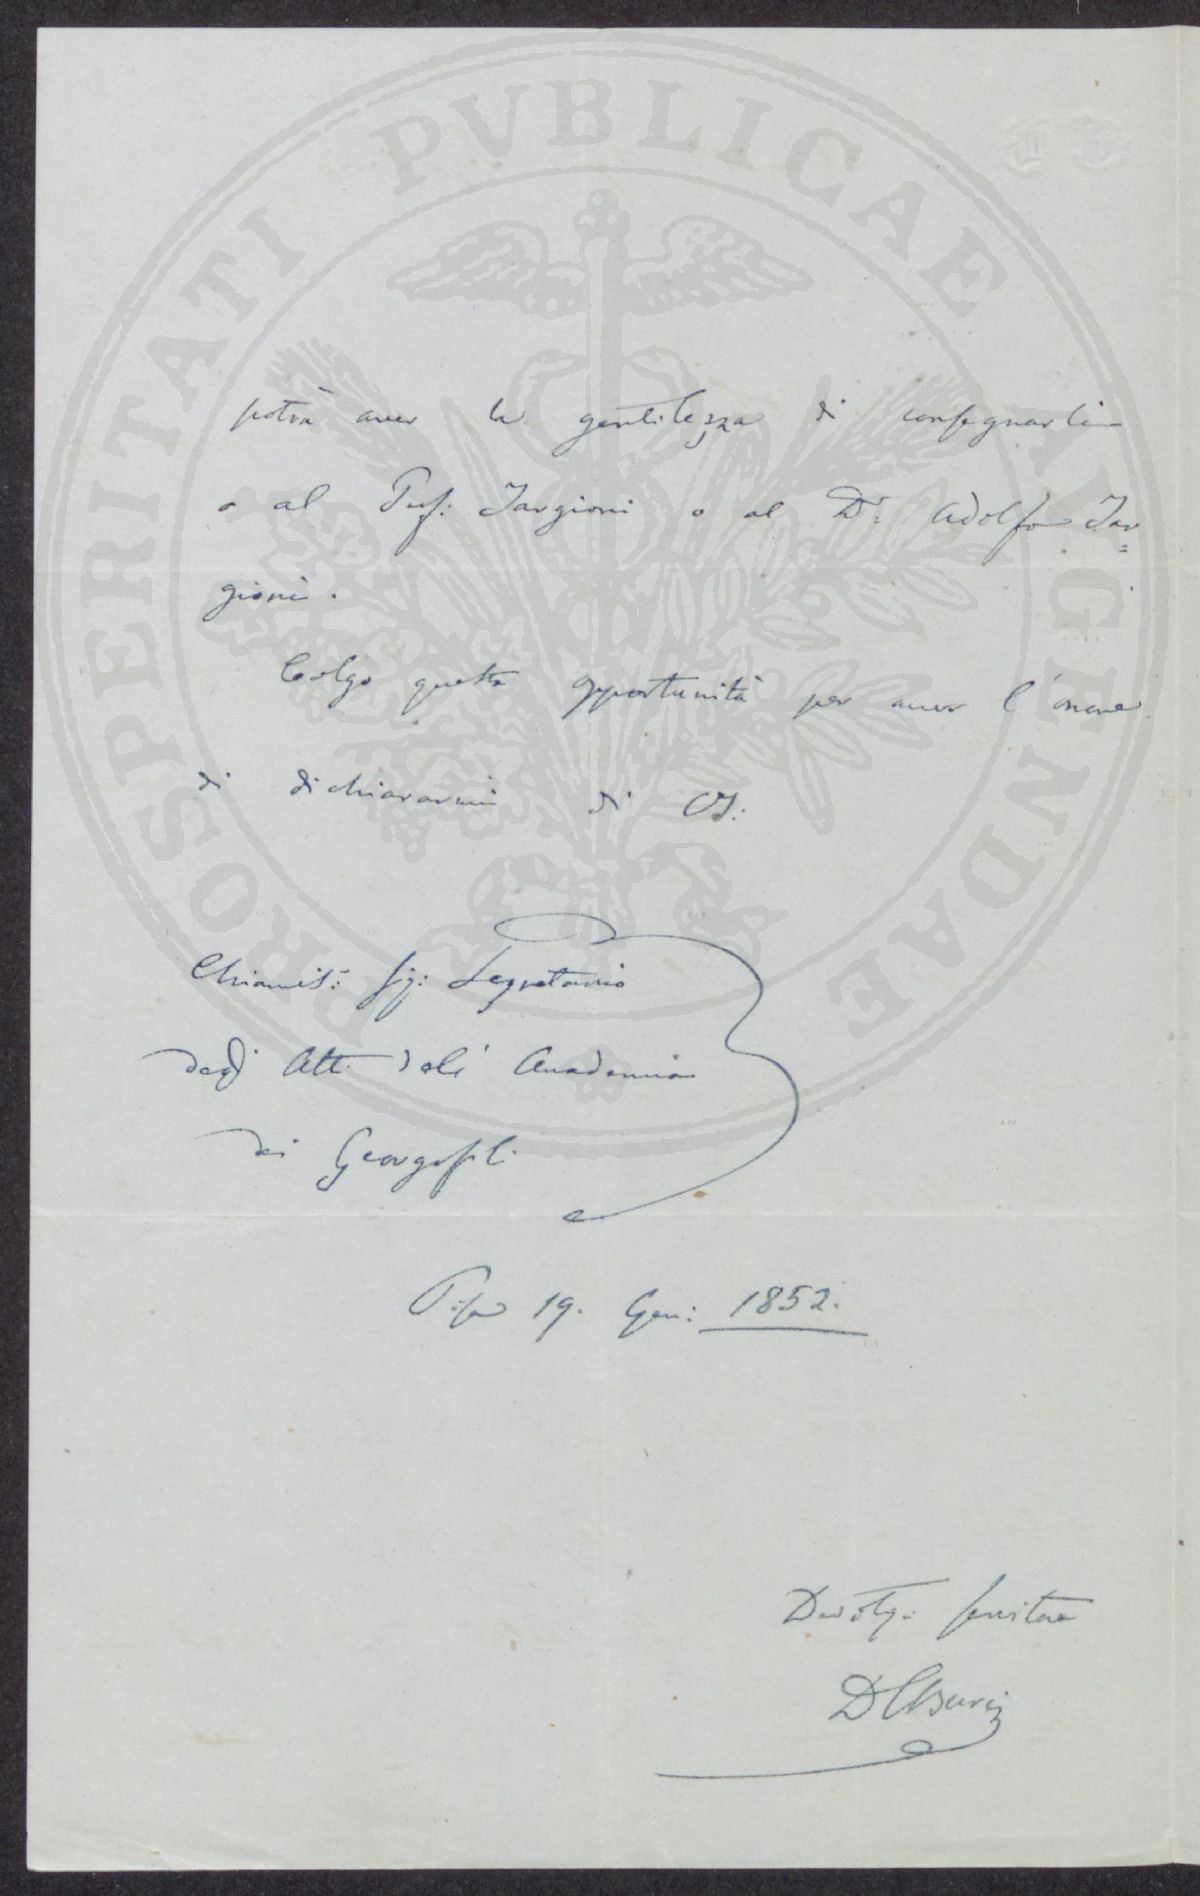 PROSPERITATI PVBLICAE AVGENDAE
potrà aver la gentilezza di consegnarli
o al Prof: Targioni o al Dr: Adolfo Tar=
gioni.
Colgo questa opportunità per aver l'onore
di dichiararmi di VS:
Chiariss: Sig: Segretario
degli Atti dell' Accademia
dei Georgofili
Pisa 19. Gen: 1852.
Devotss: servitore